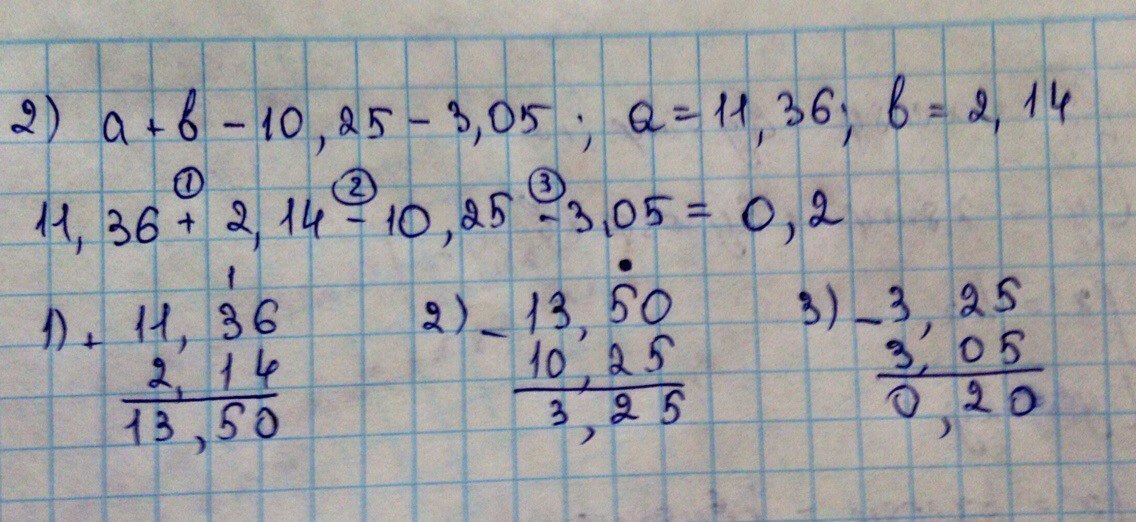 2) a + b - 10,25 - 3,05 ; a = 11,36; b = 2,14
① ② ③
11,36 + 2,14 - 10,25 - 3,05 = 0,2
1
1) + 11,36 2) - 13,50 3) - 3,25
2,14 10,25 3,05
13,50 3,25 0,20